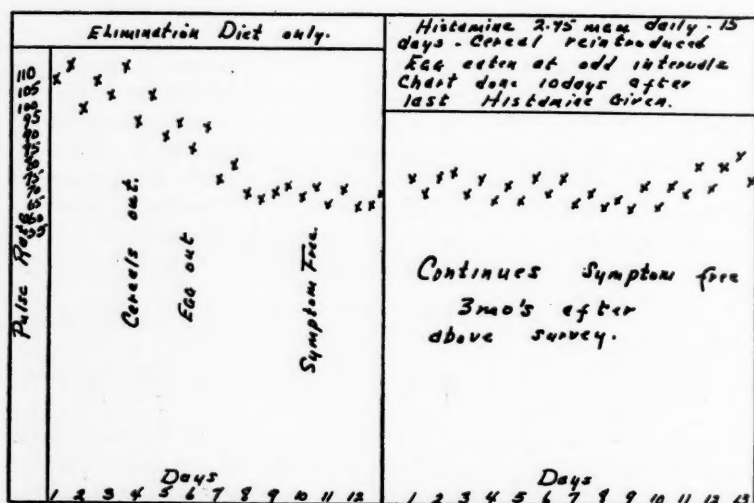 Elimination Diet only.
Histamine 2.75 mgm daily - 15
days - Cereal reintroduced
Egg eaten at odd intervals
Chart done 10days after
last Histamine Given.
110
105
100
95
90
85
80
75
70
65
60
55
Pulse Rate
Cereals out.
Egg out
Symptom Free.
Continues Symptom free
3mo's after
above survey.
Days
1 2 3 4 5 6 7 8 9 10 11 12
Days
1 2 3 4 5 6 7 8 9 10 11 12 13